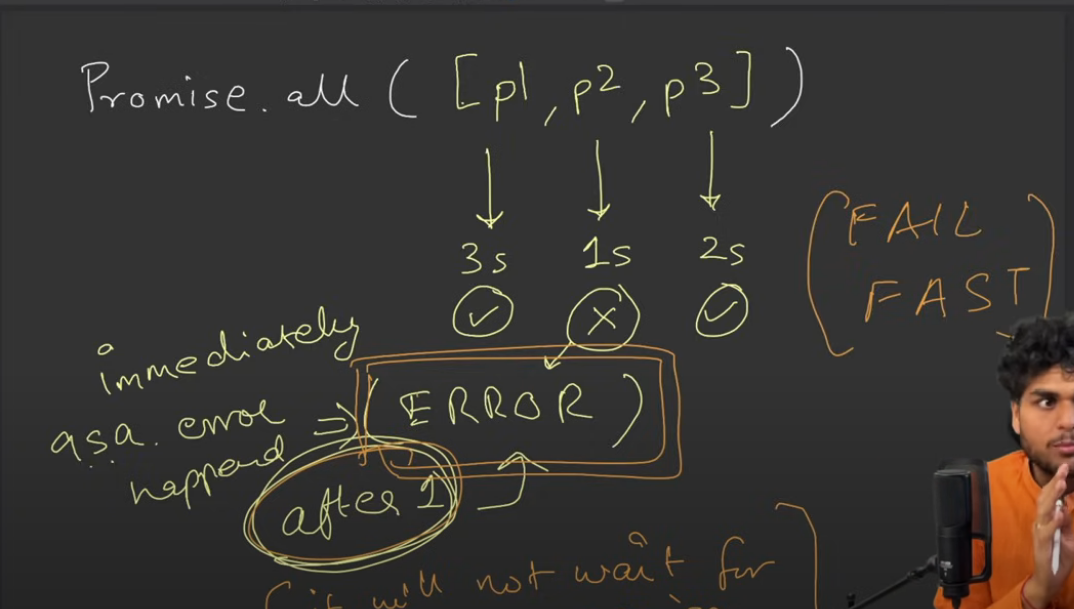 Promise.all ( [p1, p2, p3] )
3s 1s 2s
(FAIL
FAST)
immediately
a.s.a. error
happend
=> (ERROR)
after 1
(it will not wait for